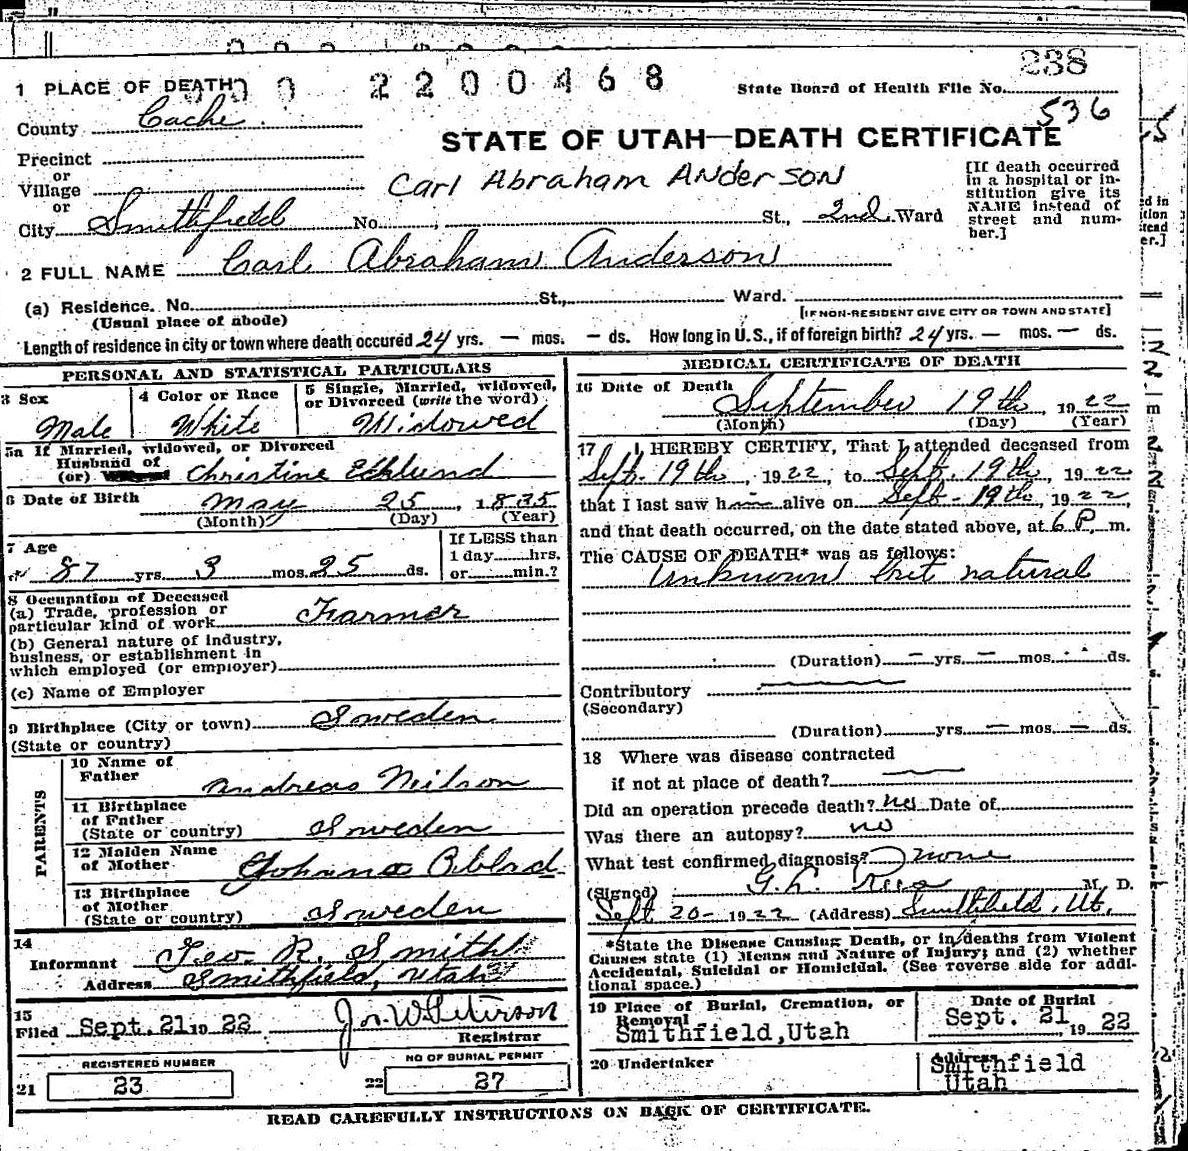 238
1 PLACE OF DEATH 2200468 State Board of Health File No.
536
County Cache
STATE OF UTAH—DEATH CERTIFICATE
Precinct
or
Village
Carl Abraham Anderson
[If death occurred in a hospital or institution give its NAME instead of street and number.]
or
City Smithfield No. St., 2nd Ward
2 FULL NAME Carl Abraham Anderson
(a) Residence. No. St., Ward.
(Usual place of abode) [IF NON-RESIDENT GIVE CITY OR TOWN AND STATE]
Length of residence in city or town where death occured 24 yrs. — mos. — ds. How long in U.S., if of foreign birth? 24 yrs. — mos. — ds.
PERSONAL AND STATISTICAL PARTICULARS
3 Sex
Male
4 Color or Race
White
5 Single, Married, widowed,
or Divorced (write the word)
Widowed
5a If Married, widowed, or Divorced
Husband of
(or) Christine Eklund
6 Date of Birth
May 25, 1835
(Month) (Day) (Year)
7 Age
87 yrs. 3 mos. 25 ds.
If LESS than
1 day hrs.
or min.?
8 Occupation of Deceased
(a) Trade, profession or
particular kind of work Farmer
(b) General nature of industry,
business, or establishment in
which employed (or employer)
(c) Name of Employer
9 Birthplace (City or town) Sweden
(State or country)
PARENTS
10 Name of
Father Andreas Neilson
11 Birthplace
of Father
(State or country) Sweden
12 Maiden Name
of Mother Johanna
13 Birthplace
of Mother
(State or country) Sweden
14
Informant Geo R. Smith
Address Smithfield, Utah
15
Filed Sept. 21 19 22 Jos. W. Peterson
Registrar
REGISTERED NUMBER
21 23
NO OF BURIAL PERMIT
22 27
MEDICAL CERTIFICATE OF DEATH
16 Date of Death
September 19th, 1922
(Month) (Day) (Year)
17 I HEREBY CERTIFY, That I attended deceased from
Sept. 19th, 1922, to Sept. 19th, 1922
that I last saw him alive on Sept - 19th, 1922,
and that death occurred, on the date stated above, at 6 P. m.
The CAUSE OF DEATH* was as follows:
Unknown but natural
(Duration) — yrs. — mos. ds.
Contributory
(Secondary)
(Duration) yrs. — mos. — ds.
18 Where was disease contracted
if not at place of death?
Did an operation precede death? no Date of
Was there an autopsy? no
What test confirmed diagnosis? none
(Signed) G. L. Rees M. D.
Sept 20 - 1922 (Address) Smithfield, Ut.
*State the Disease Causing Death, or in deaths from Violent
Causes state (1) Means and Nature of Injury; and (2) whether
Accidental, Suicidal or Homicidal. (See reverse side for additional space.)
19 Place of Burial, Cremation, or
Removal
Smithfield, Utah
Date of Burial
Sept. 21 19 22
20 Undertaker
Address
Smithfield
Utah
READ CAREFULLY INSTRUCTIONS ON BACK OF CERTIFICATE.